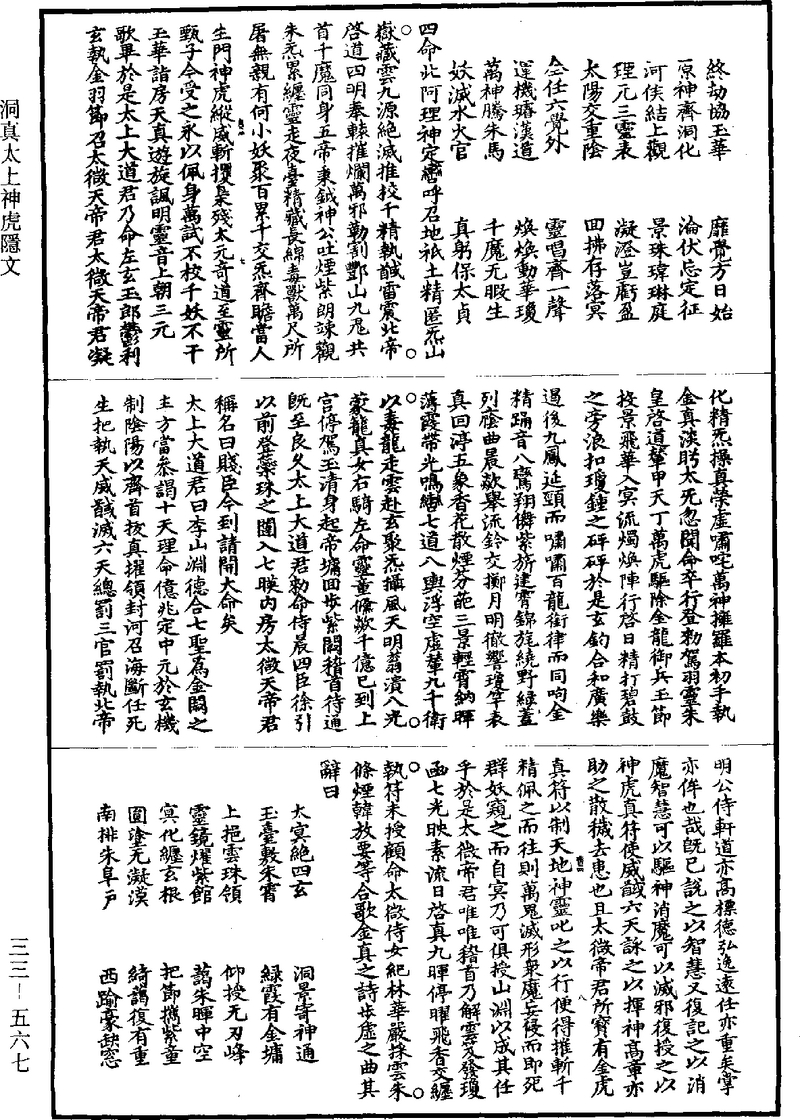 終劫協玉華　靡覺方日始
原神齊洞化　淪伏忘定征
河侯結上觀　景珠瑋琳庭
理元三靈表　凝澄豈虧盈
太陽交重陰　回拂存落冥
仝任六覺外　靈唱齊一聲
運機躡漢道　煥煥動華瓊
萬神騰朱馬　千魔无暇生
妖滅水火官　真躬保太貞
四命此阿理神定巒呼召地祇土精匿炁山
嶽藏雲九源絕滅推校千精執馘雷震北帝
啓道四明奉轅摧爛萬邪勦割酆山九鬼共
首千魔同身五帝秉鉞神公吐煙紫朗諫觀
朱炁累纏靈走夜臺精藏長綿毒獸萬尺所
屠無親有何小妖聚百累千交炁齊瞻當人
生門神虎縱威斬攫梟殘太元奇道至靈所
甄子今受之永以佩身萬試不校千妖不干
玉華詣房天真遊旋諷明靈音上朝三元
歌畢於是太上大道君乃命左玄玉郎鬱利
玄執金羽節召太微天帝君太微天帝君凝
化精炁操真榮虛嘯咤萬神擁羅本初手執
金真淡眄太无忽聞命卒行登勑駕羽靈朱
皇啓道輦甲天丁萬虎驅除金龍御兵玉節
投景飛華入冥流燭煥陣行啓日精打碧鼓
之旁浪扣瓊鍾之砰砰於是玄鈞合和廣樂
過後九鳳延頸而嘯嘯百龍銜律而同呴金
精踊音八鸞翔儛紫旂建霄錦旌繞野綠蓋
列䕃曲晨欻舉流鈴交擲月明徹響瓊竿表
真回渟五象香花散煙芬葩三景輕霄納暉
薄霞帶光鳴嘯七道八輿浮空虛輦九千衛
以毒龍走雲赴玄聚炁攝風天明蓊潰八光
蒙籠真女右騎左命靈童倏欻千億已到上
宮停駕玉清身起帝墉回步紫闕稽首待通
既至良久太上大道君勑命侍晨四臣徐引
以前登蘂珠之闥入七暎內房太微天帝君
稱名曰賤臣今到請開大命矣
太上大道君曰李山淵德合七聖為金闕之
主方當參謁十天理命億兆定中元於玄機
制陰陽以齊首拔真擢領封河召海斷任死
生把執天威馘滅六天總罰三官罰執北帝
明公侍軒道亦高標德弘逸遠任亦重矣掌
亦侔也哉既已說之以智慧又復記之以消
魔智慧可以驅神消魔可以滅邪復授之以
神虎真符使威馘六天詠之以揮神高章亦
助之散穢去患也且太微帝君所寶有金虎
真符以制天地神靈叱之以行便得摧斬千
精佩之而往則萬鬼滅形衆魔妄後而即死
群妖窺之而自冥乃可俱授山淵以成其任
乎於是太微帝君唯唯稽首乃解雲笈發瓊
函七光映素流日啓真九暉停曜飛香交纏
執符未授顧命太微侍女紀林華嚴採雲朱
條煙韓放要等合歌金真之詩步虛之曲其
辭曰
太冥絕四玄　洞景寄神通
玉臺敷朱霄　綠霞有金墉
上挹雲珠領　仰授无刃峰
靈鏡燿紫館　藹朱暉中空
冥化纏玄根　把節攜紫童
圓塗无凝漠　綺藹復有重
南排朱阜戶　西踰豪缺窓
洞真太上神虎隱文
三三－五六七